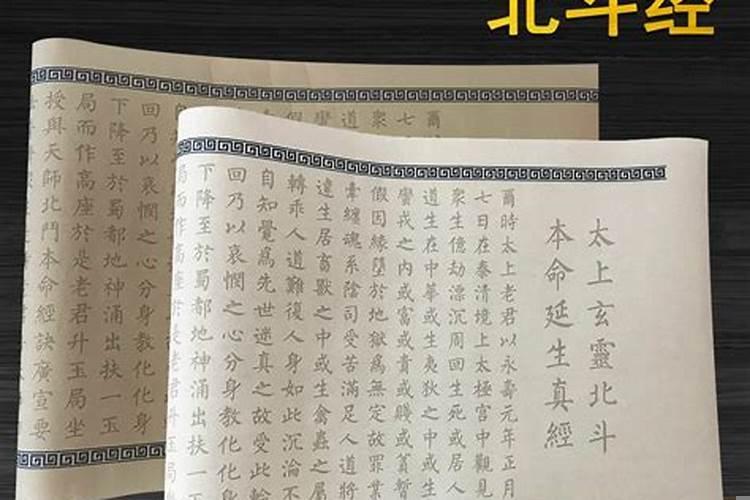 北斗经
太上玄靈北斗
本命延生真經
爾時太上老君以永壽元年正月
七日在泰清境上太極宮中觀見
眾生億劫漂沉周回生死或居人
道生在中華或生夷狄之中或生
蠻戎之內或富或貴或賤或貧暫
假因緣墮於地獄為無定故罪業
牽纏魂系陰司受苦滿足人道將
違生居畜獸之中或生禽蟲之屬
轉乖人道難復人身如此沉淪不
自知覺為先世迷真之故受此輪
回乃以哀憫之心分身教化化
下降至於蜀都地神涌出扶一
局而作高座於是老君升玉局
爾
七
眾
道
蠻
假
回乃以哀憫之心分身教化化身
下降至於蜀都地神涌出扶一玉
局而作高座於是老君升玉局坐
授與天師北鬥本命經訣廣宣要